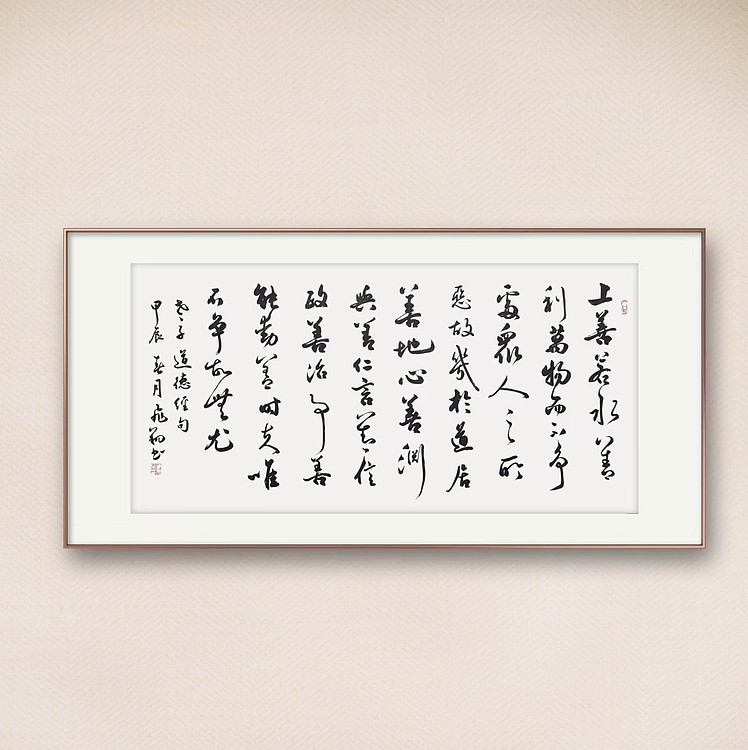 上善若水水善
利萬物而不爭
處衆人之所
惡故幾於道居
善地心善淵
與善仁言善信
政善治事善
能動善時夫唯
不爭故無尤
老子道德經句
甲辰春月飛翔書